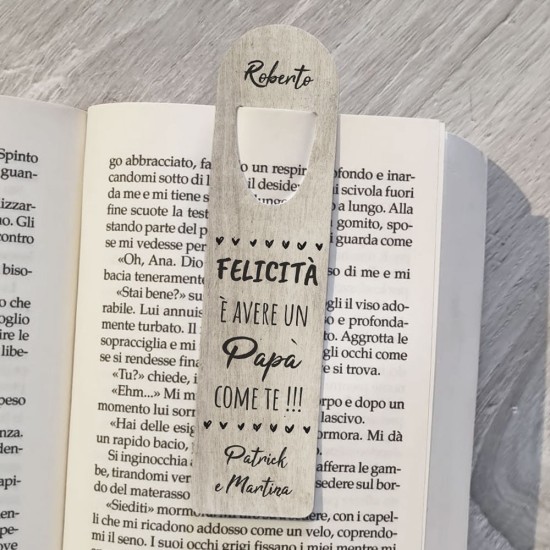 Roberto
FELICITÀ
È AVERE UN
Papà
COME TE !!!
Patrick
e Martina
Spinto
guan-
izzar-
no. Gli
contro
biso-
o che
oglio
ire le
libe-
peso
nza.
den-
api-
go abbracciato, fa un respir ofondo e inar-
candomi sotto di l il desider i scivola fuori
da me e mi tiene s a lungo. Alla
fine scuote la test gomito, spo-
stando parte del p i guarda come
se mi vedesse per
«Oh, Ana. Dio so di me e mi
bacia teneramente
«Stai bene?» su gli il viso ado-
rabile. Lui annuis o e profonda-
mente turbato. Il m Aggrotta le
sopracciglia e mi a gli occhi come
se si rendesse fina si trova.
«Tu?» chiede, i
«Ehm...» Mi m orpo e dopo un
momento lui sorr lascivo.
«Hai delle esig ormora. Mi dà
un rapido bacio,
Si inginocchia a afferra le gam-
be, tirandomi vers sedere sul bor-
do del materasso
«Siediti» mormo, con i capel-
li che mi ricadono addosso come un velo, coprendo-
mi il seno. I suoi occhi grigi fissano i miei mentre mi